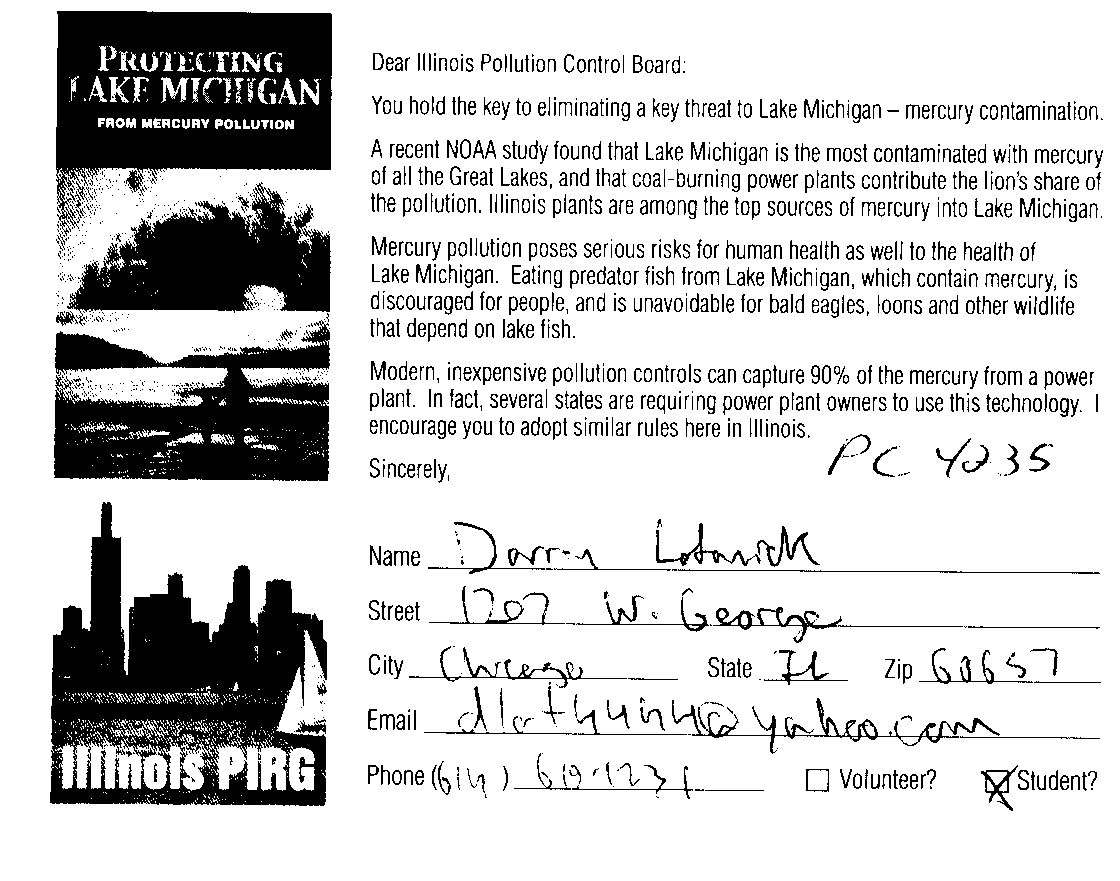 PROTECTING
LAKE MICHIGAN
FROM MERCURY POLLUTION
Illinois PIRG
Dear Illinois Pollution Control Board:
You hold the key to eliminating a key threat to Lake Michigan – mercury contamination.
A recent NOAA study found that Lake Michigan is the most contaminated with mercury
of all the Great Lakes, and that coal-burning power plants contribute the lion's share of
the pollution. Illinois plants are among the top sources of mercury into Lake Michigan.
Mercury pollution poses serious risks for human health as well to the health of
Lake Michigan. Eating predator fish from Lake Michigan, which contain mercury, is
discouraged for people, and is unavoidable for bald eagles, loons and other wildlife
that depend on lake fish.
Modern, inexpensive pollution controls can capture 90% of the mercury from a power
plant. In fact, several states are requiring power plant owners to use this technology. I
encourage you to adopt similar rules here in Illinois.
PC 4235
Sincerely,
Name Darren
Street 1207 W. George
City Chicago State IL Zip 60657
Email
Phone (614)
Volunteer? Student?